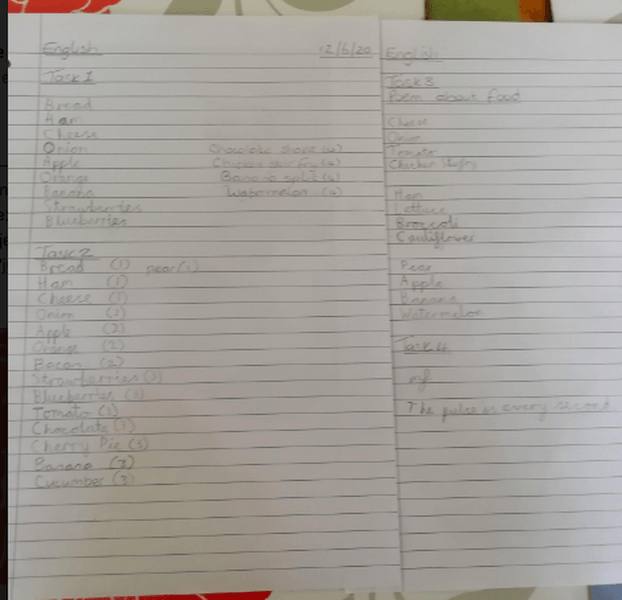 English 12/6/20
Task 1
Bread
Ham
Cheese
Onion Chocolate shake (4)
Apple Chicken stir fry (4)
Orange Banana split (4)
Banana Watermelon (4)
Strawberries
Blueberries
Task 2
Bread (1) pear (1)
Ham (1)
Cheese (1)
Onion (2)
Apple (2)
Orange (2)
Bacon (2)
Strawberries (3)
Blueberries (3)
Tomato (3)
Chocolate
Cherry Pie (3)
Banana (3)
Cucumber (3)
English
Task 3
Poem about food
Cheese
Onion
Tomato
Chicken
Ham
Lettuce
Broccoli
Cauliflower
Pear
Apple
Banana
Watermelon
Task 4
mf
The pulse is every second